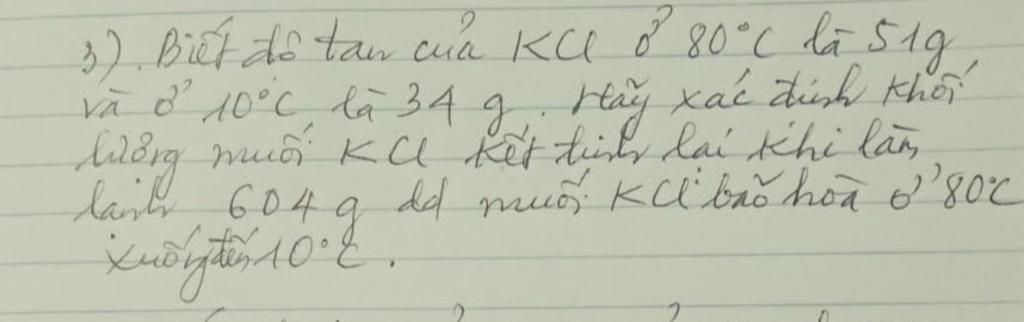 3). Biết độ tan của KCl ở 80°C là 51g
và ở 10°C là 34 g. Hãy xác định khối
lượng muối KCl kết tinh lại khi làm
lạnh 604 g dd muối KCl bão hoà ở 80°C
xuống đến 10°C.